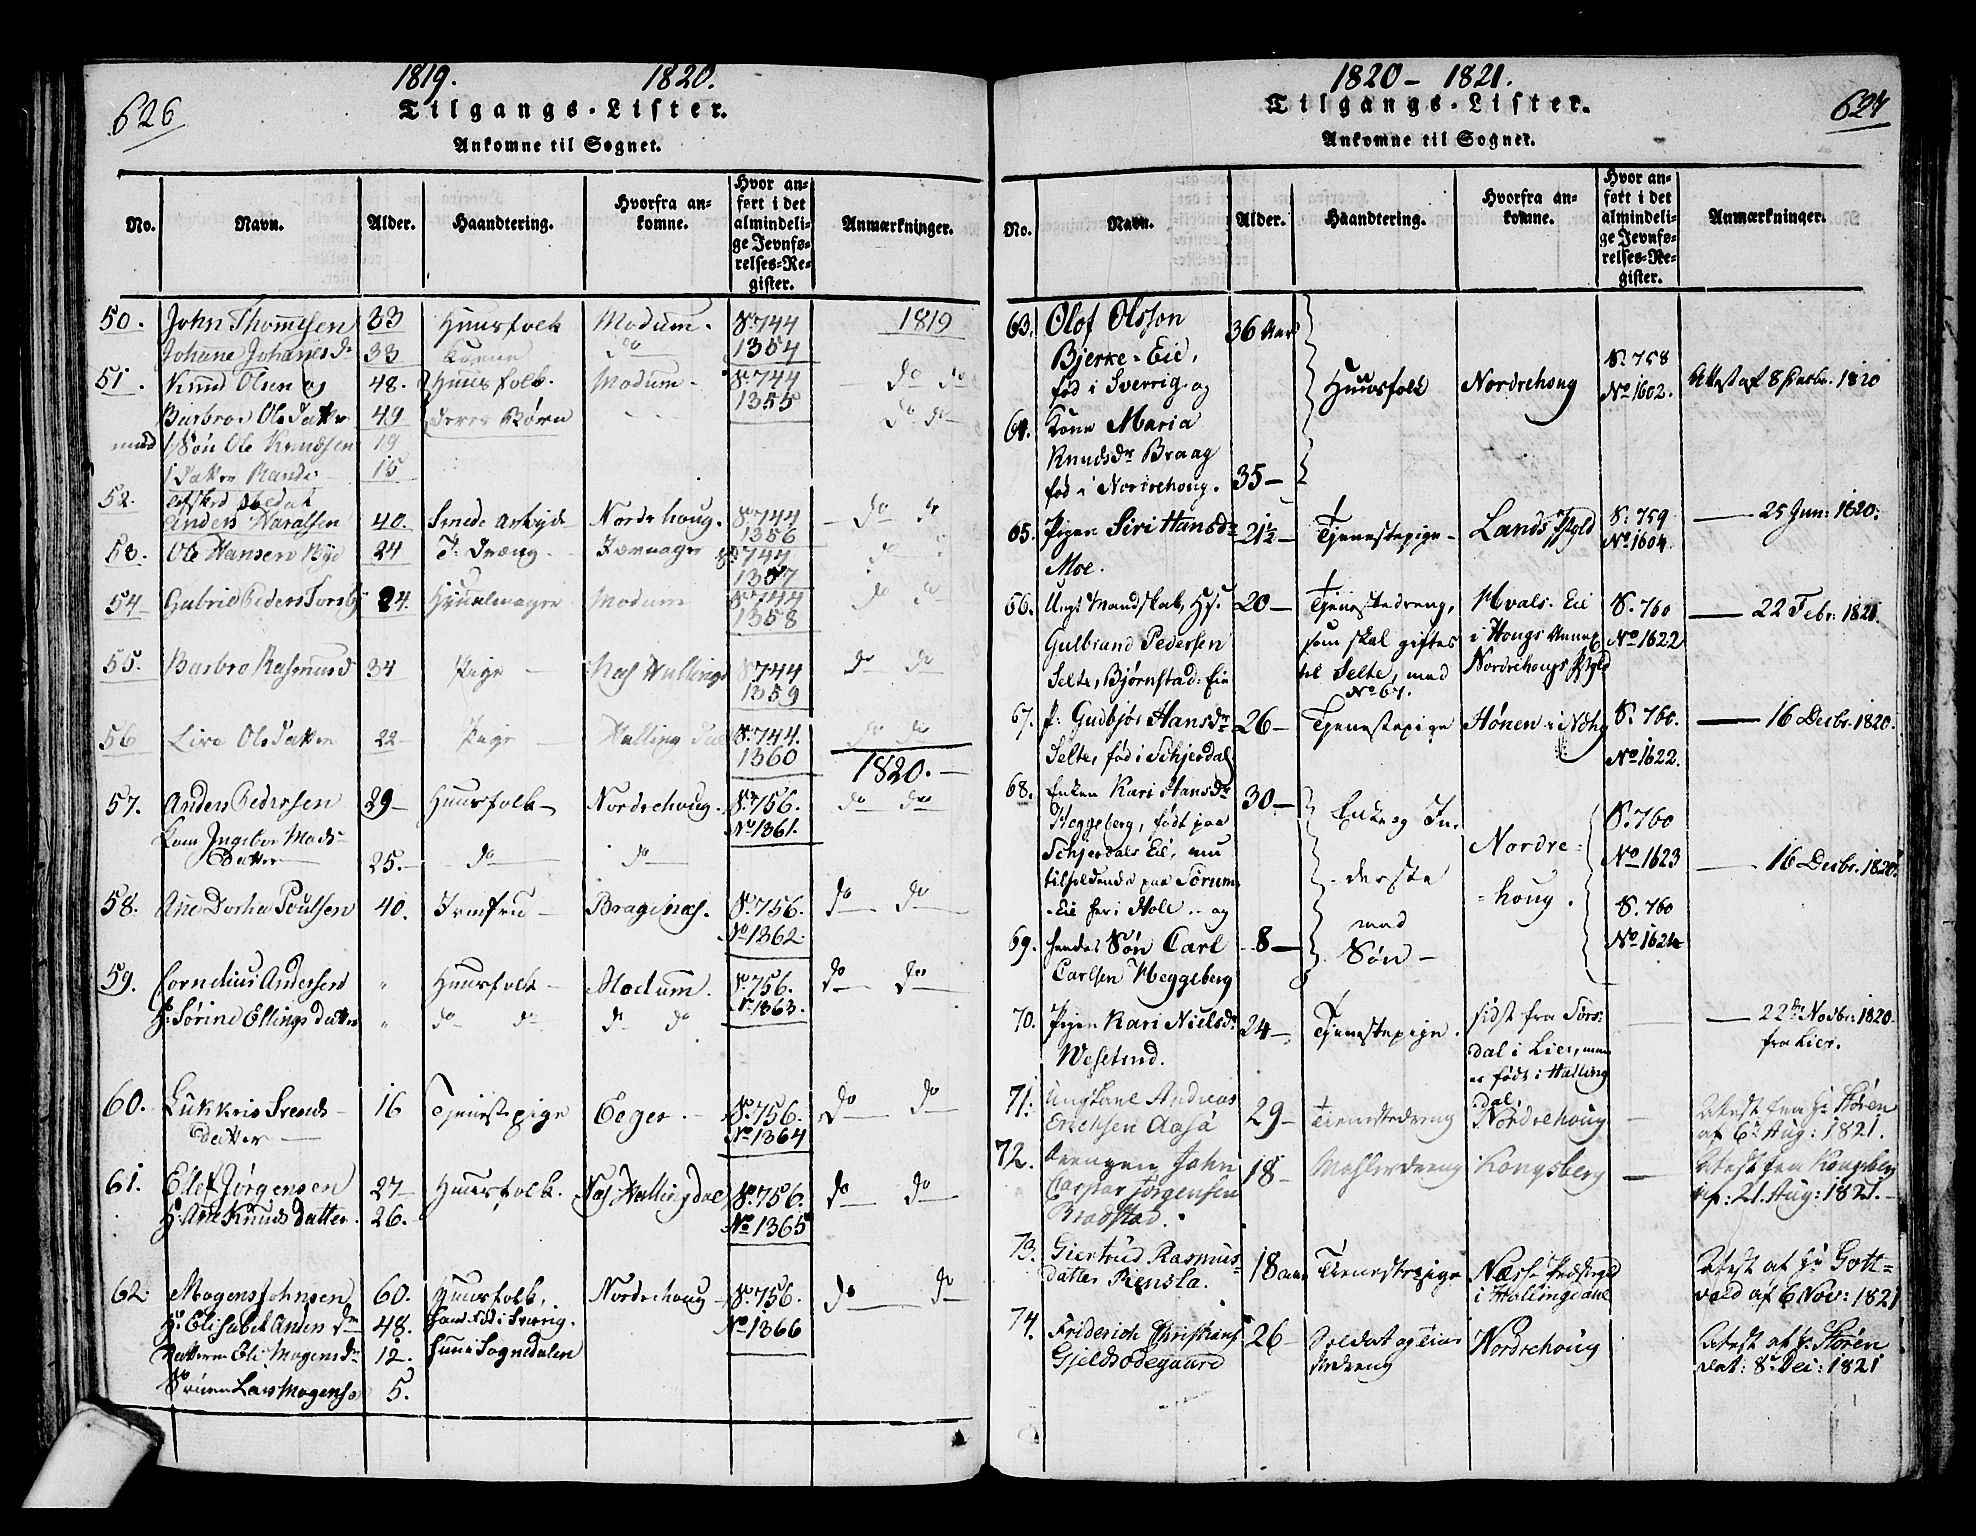 626
1819. 1820.
Tilgangs-Lister.
Ankomne til Sognet.
No. Navn. Alder. Haandtering. Hvorfra ankomne. Hvor anført i det almindelige Jevnførelses-Register. Anmærkninger.
50. John Thomesen 33 Huusfolk Modum. S. 744 1819
Johane Johanesdr 33 Do 1354
51. Knud Olsen og 48. Huusfolk. Modum. S. 744 Do Do
Barbroe Olsdatter 49 deres Børn 1355 Do Do
med 1 Søn Ole Knudsen 19
1 datter Randi 15
52. Afsked Soldat
Anders Haralsen 40. Smede Nordrehoug. S. 744 Do Do
1356
53. Ole Hansen 24 S. 744 Do
1357
54 Gabriel Peders 24. Modum S. 744 Do Do
1358
55. Barbro Rasmusd 34 Pige Næs Hallingd S. 744 Do Do
1359
56 Live Olsdatter 22 Pige Hallingdal S. 744. Do Do
1360
1820.
57. Anders Pedersen 29 Huusfolk Nordrehoug. S. 756. Do Do
Kone Ingebor Mads- No 1361.
datter 25. Do Do
58. Ane Dorthea Poulsen 40. Jomfru Bragenæs. S. 756. Do Do
No 1362
59. Cornelius Andersen " Huusfolk Modum. S. 756. Do Do
H: Sørine Ellings datter " Do Do Do Do No 1363.
60. Lukkris Svends- 16 Tjenestepige Eeger. S. 756. Do Do
datter No 1364
61. Elef Jørgensen 27 Huusfolk. Næs Hallingdal S. 756. Do Do
H: Ane Knuds datter 26. No 1365
62. Mogens Johnsen 60. Huusfolk, Nordrehoug S. 756. Do Do
H: Elisabet Anders dr 48. han Fød i Sverrig. No 1366
Datteren Eli Mogensdr 12. hun i Sognedalen
Sønen Lars Mogensen 5.
1820 – 1821.
627
Tilgangs-Lister.
Ankomne til Sognet.
No. Navn. Alder. Haandtering. Hvorfra ankomne. Hvor anført i det almindelige Jevnførelses-Register. Anmærkninger.
63. Olof Olsson 36 Aar
Bjerke-Eie, S. 758
fød i Sverrig og Huusfolk Nordrehoug No 1602. Attest af 8 Decbr. 1820
64. Kone Maria
Knudsdr Braag
fød i Nordrehoug. 35
65. Pigen Siri Hansdr 21½ Tjenestepige Lands Pgld S. 759 25 Jun: 1820.
Moe. No 1604.
66. Ungt Mandskab, 20 Tjenestedreng, Hvals-Eie S. 760 22 Febr. 1821.
Gulbrand Pedersen som skal giftes i Hougs Annex No 1622
Selte, Bjørnstad-Eie til Selte, med Nordrehougs Pgld
No 67.
67. P: Gudbjør Hansdr 26 Tjenestepige Hønen i Ndhg S. 760. 16 Decbr. 1820.
Selte, fød i Schjerdal No 1622.
68. Enken Kari Hansdr 30 Enke og In- S. 760
Heggeberg, født paa derste Nordre- No 1623 16 Decbr. 1820.
Schjerdals Eie, nu med houg.
tilholdende paa Sørum Søn S. 760
-Eie her i Hole – og No 1624
69. hendes Søn Carl 8
Carlsen Heggeberg
70. Pigen Kari Nielsdr 24 Tjenestepige. sidst fra Sørs- 22de Novbr. 1820
Weselud. dal i Lier, men fra Lier.
er født i Halling
dal.
71. Ungkarl Andreas 29 Tienestedreng Nordrehoug Attest fra Hr Støren
Erichsen Aasà af 6te Aug: 1821.
72. Drengen John 18 Kongsberg Attest fra Kongsberg
Caspar Jørgensen 21. Aug: 1821.
Bradstad.
73. Giertrud Rasmus- 18 aar Tienestepige Næss Præstegield Attest af Hr Gott-
datter Rensla. i Hallingdahl vald af 6 Nov: 1821
74. Friderich Christians 26 Soldat og Tiene Nordrehoug Attest af Hr Støren
Gjeldsødegaard stedreng dat: 8de Dec: 1821